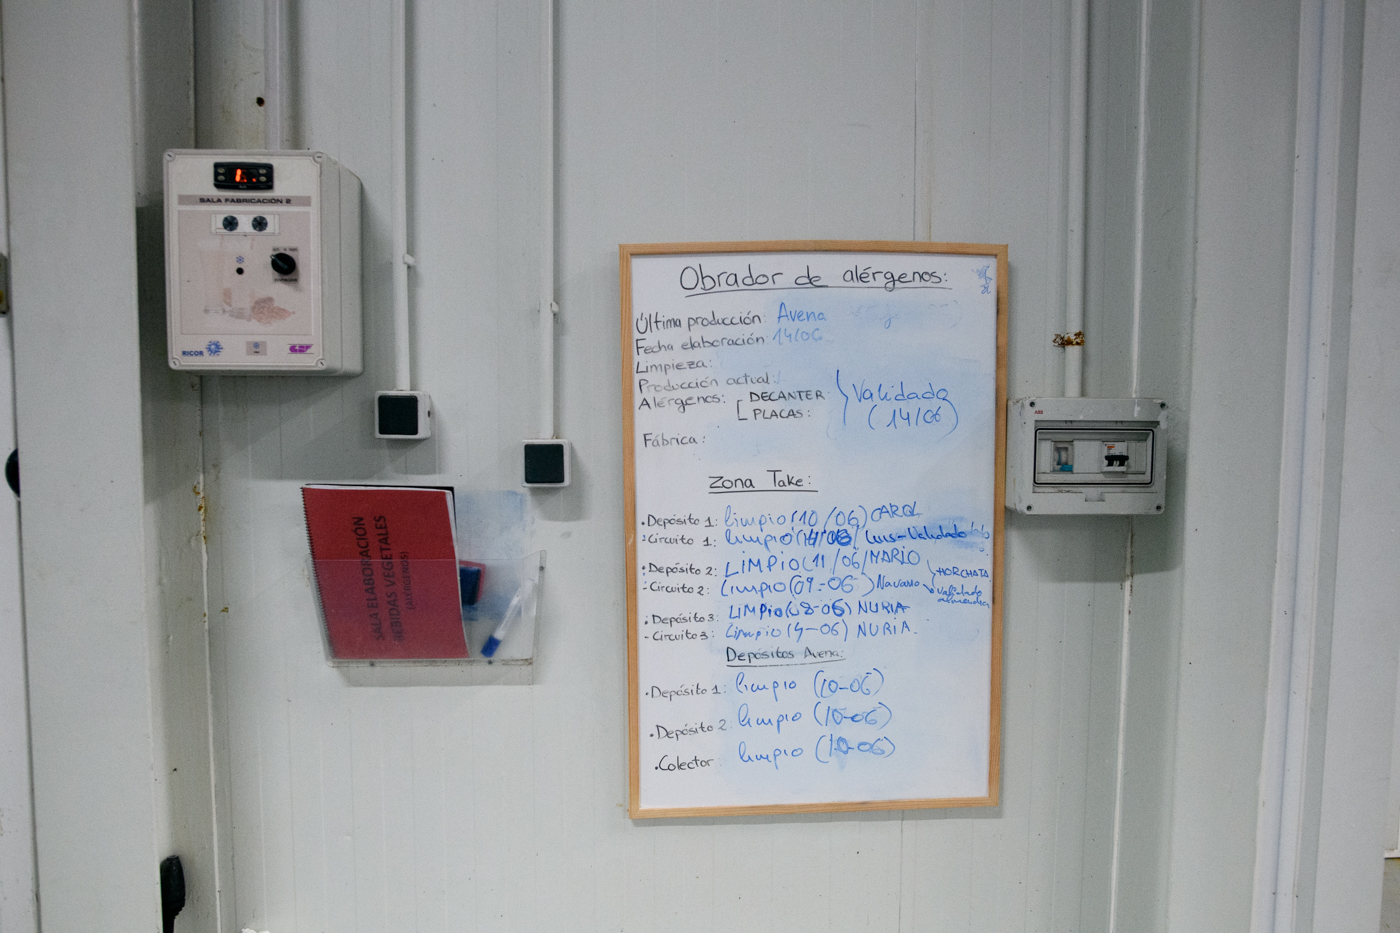 SALA FABRICACIÓN 2
RICOR
SALA ELABORACIÓN
BEBIDAS VEGETALES
(ALÉRGENOS)
Obrador de alérgenos:
Última producción: Avena
Fecha elaboración: 14/06
Limpieza:
Producción actual:
Alérgenos: DECANTER
PLACAS:
Validado
(14/06)
Fábrica:
Zona Take:
• Depósito 1: limpio (10/06) CAROL
- Circuito 1: limpio Luis-Validado
• Depósito 2: LIMPIO (11/06) MARIO
HORCHATA
- Circuito 2: Limpio (09-06) Navarro
Validado
• Depósito 3: LIMPIO (08-06) NURIA
- Circuito 3: Limpio (4-06) NURIA.
Depósitos Avena:
• Depósito 1: limpio (10-06)
• Depósito 2: limpio (10-06)
• Colector: limpio (10-06)
ABB